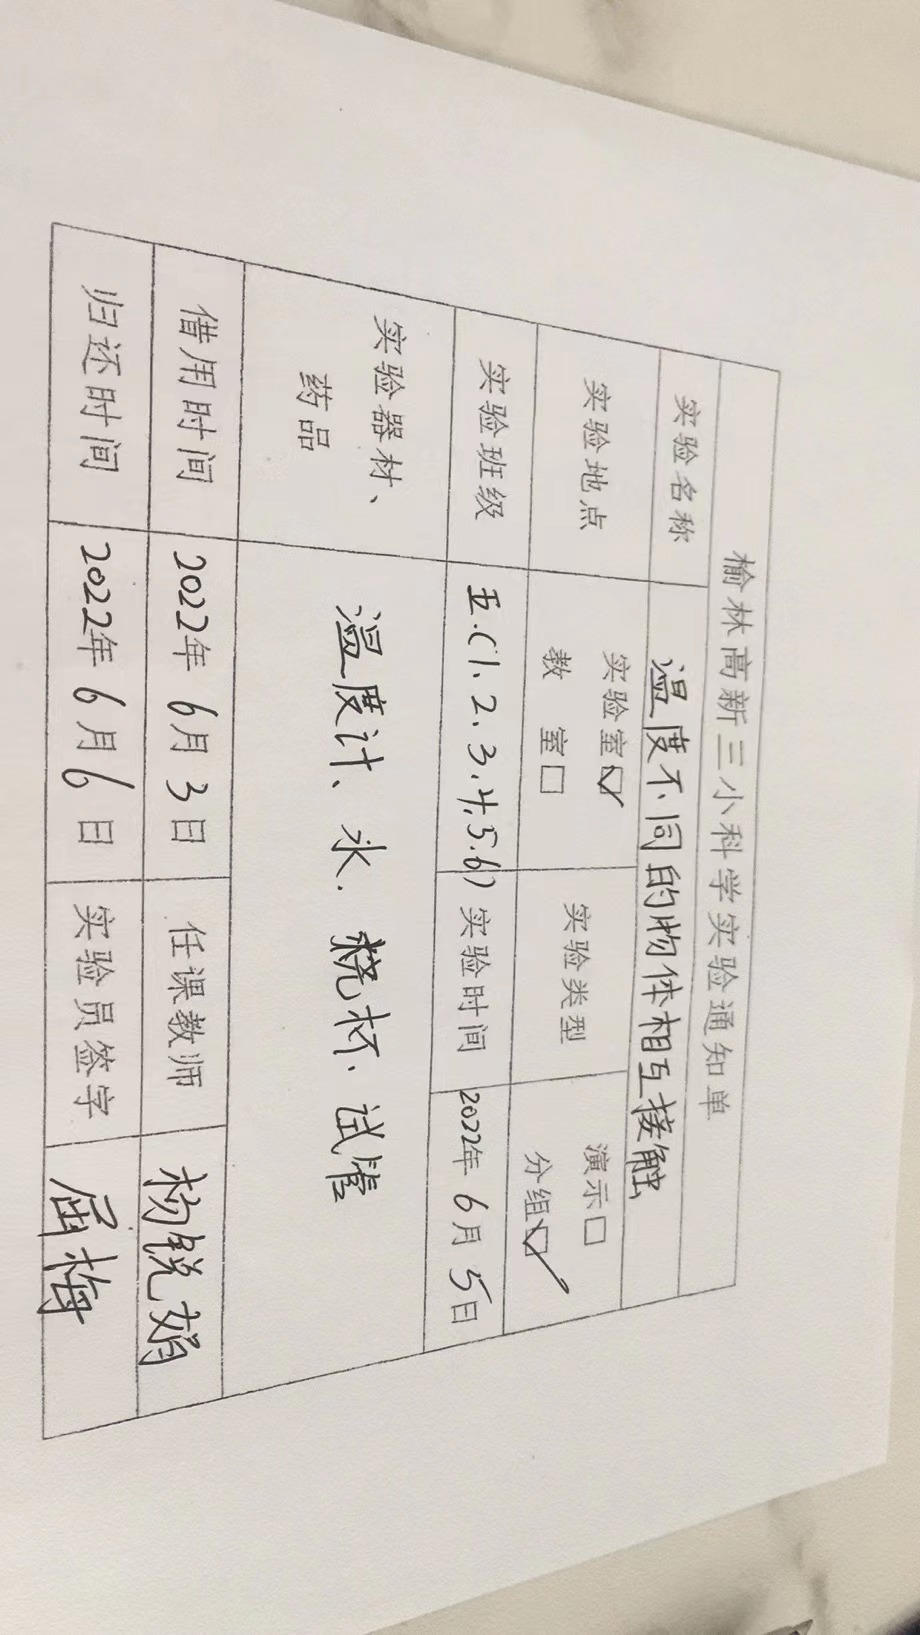 榆林高新三小科学实验通知单
实验名称 温度不同的物体相互接触
实验地点 实验室☑ 教 室□ 实验类型 演示□ 分组☑
实验班级 五.(1.2.3.4.5.6) 实验时间 2022年6月5日
实验器材、药品 温度计、水.烧杯、试管
借用时间 2022年6月3日 任课教师 杨锐娟
归还时间 2022年6月6日 实验员签字 屈梅